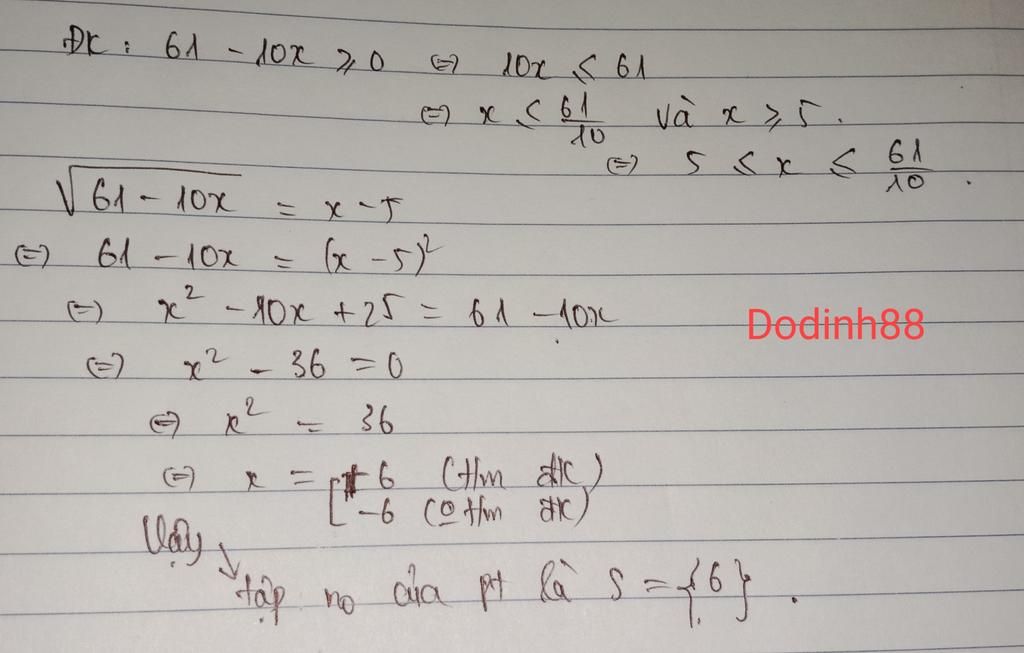 ĐK : 61 - 10x ≥ 0 ⇔ 10x ≤ 61
⇔ x ≤ 61/10 và x ≥ 5 .
⇔ 5 ≤ x ≤ 61/10 .
√(61 - 10x) = x - 5
⇔ 61 - 10x = (x - 5)²
⇔ x² - 10x + 25 = 61 - 10x
Dodinh88
⇔ x² - 36 = 0
⇔ x² = 36
⇔ x = [ +6 (t/m đk)
-6 (o t/m đk)
Vậy
tập no của pt là S = {6} .